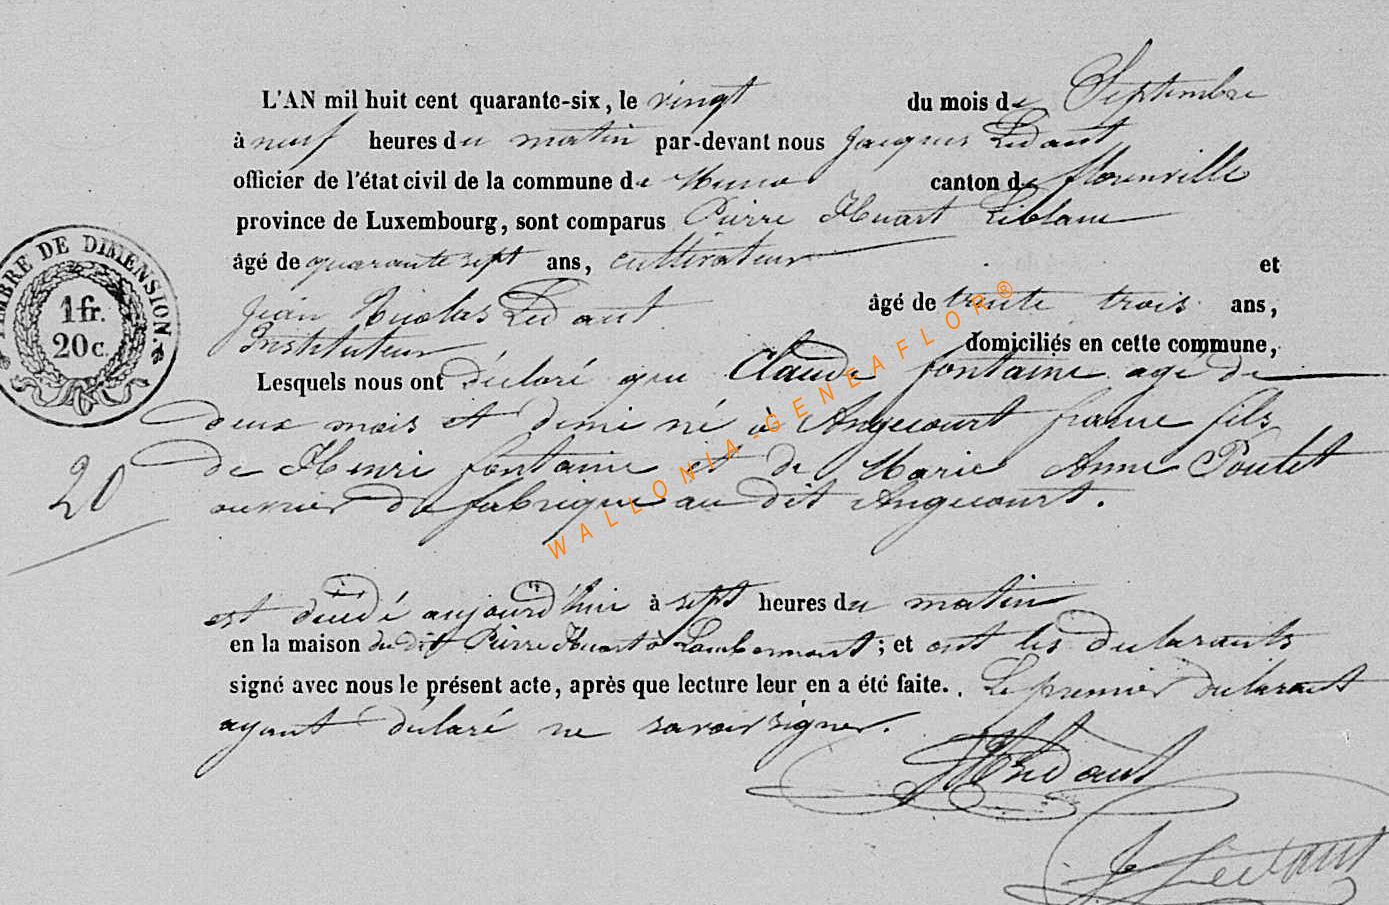 L'AN mil huit cent quarante-six, le vingt du mois de Septembre
à neuf heures du matin par-devant nous Jacques Ledant
officier de l'état civil de la commune de Muno canton de florenville
province de Luxembourg, sont comparus Pierre Huart Leblanc
âgé de quarante sept ans, cultivateur et
Jean Nicolas Ledant âgé de trente trois ans,
Instituteur domiciliés en cette commune,
Lesquels nous ont déclaré que Claude fontaine agé de
deux mois et demi né à Angecourt france fils
de Henri fontaine et de Marie Anne Poulet
ouvrier de fabrique au dit Angecourt.
est décedé aujourd'hui à sept heures du matin
en la maison du dit Pierre Huart à Lambermont ; et ont les declarants
signé avec nous le présent acte, après que lecture leur en a été faite. Le premier declarant
ayant déclaré ne savoir signer.
JNLedant
J Ledant
TIMBRE DE DIMENSION.
1 fr.
20 c.
20
WALLONIA-GENEAFLOR®